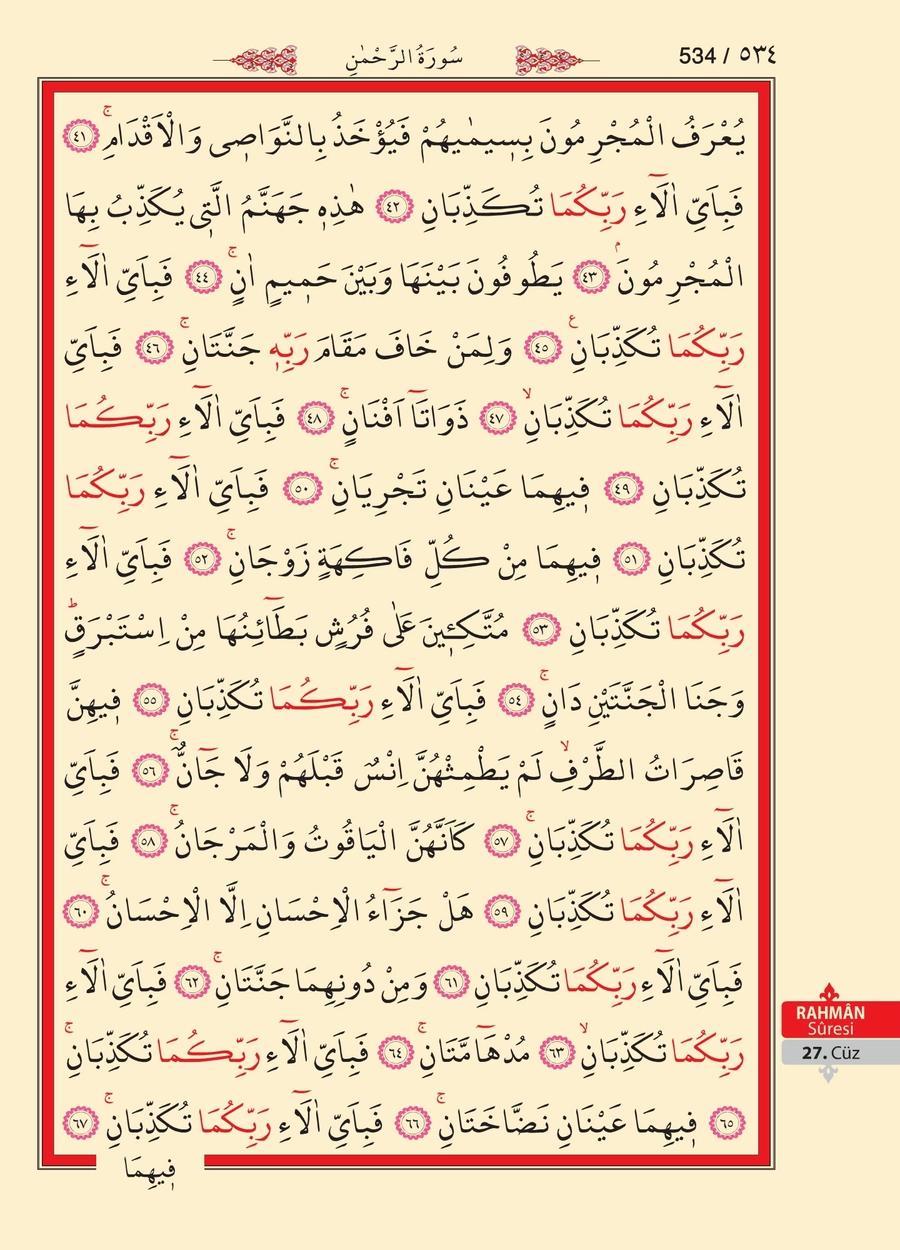 سُورَةُ الرَّحْمٰنِ
534 / ٥٣٤
يُعْرَفُ الْمُجْرِمُونَ بِس۪يمٰيهُمْ فَيُؤْخَذُ بِالنَّوَاص۪ي وَالْاَقْدَامِۚ ﴿٤١﴾
فَبِاَيِّ اٰلَٓاءِ رَبِّكُمَا تُكَذِّبَانِ ﴿٤٢﴾ هٰذِه۪ جَهَنَّمُ الَّت۪ي يُكَذِّبُ بِهَا
الْمُجْرِمُونَۢ ﴿٤٣﴾ يَطُوفُونَ بَيْنَهَا وَبَيْنَ حَم۪يمٍ اٰنٍۚ ﴿٤٤﴾ فَبِاَيِّ اٰلَٓاءِ
رَبِّكُمَا تُكَذِّبَانِ۟ ﴿٤٥﴾ وَلِمَنْ خَافَ مَقَامَ رَبِّه۪ جَنَّتَانِۚ ﴿٤٦﴾ فَبِاَيِّ
اٰلَٓاءِ رَبِّكُمَا تُكَذِّبَانِۙ ﴿٤٧﴾ ذَوَاتَٓا اَفْنَانٍۚ ﴿٤٨﴾ فَبِاَيِّ اٰلَٓاءِ رَبِّكُمَا
تُكَذِّبَانِ ﴿٤٩﴾ ف۪يهِمَا عَيْنَانِ تَجْرِيَانِۚ ﴿٥٠﴾ فَبِاَيِّ اٰلَٓاءِ رَبِّكُمَا
تُكَذِّبَانِ ﴿٥١﴾ ف۪يهِمَا مِنْ كُلِّ فَاكِهَةٍ زَوْجَانِۚ ﴿٥٢﴾ فَبِاَيِّ اٰلَٓاءِ
رَبِّكُمَا تُكَذِّبَانِ ﴿٥٣﴾ مُتَّكِـ۪ٔينَ عَلٰى فُرُشٍ بَطَٓائِنُهَا مِنْ اِسْتَبْرَقٍۜ
وَجَنَا الْجَنَّتَيْنِ دَانٍۚ ﴿٥٤﴾ فَبِاَيِّ اٰلَٓاءِ رَبِّكُمَا تُكَذِّبَانِ ﴿٥٥﴾ ف۪يهِنَّ
قَاصِرَاتُ الطَّرْفِۙ لَمْ يَطْمِثْهُنَّ اِنْسٌ قَبْلَهُمْ وَلَا جَٓانٌّۚ ﴿٥٦﴾ فَبِاَيِّ
اٰلَٓاءِ رَبِّكُمَا تُكَذِّبَانِۚ ﴿٥٧﴾ كَاَنَّهُنَّ الْيَاقُوتُ وَالْمَرْجَانُۚ ﴿٥٨﴾ فَبِاَيِّ
اٰلَٓاءِ رَبِّكُمَا تُكَذِّبَانِ ﴿٥٩﴾ هَلْ جَزَٓاءُ الْاِحْسَانِ اِلَّا الْاِحْسَانُۚ ﴿٦٠﴾
فَبِاَيِّ اٰلَٓاءِ رَبِّكُمَا تُكَذِّبَانِ ﴿٦١﴾ وَمِنْ دُونِهِمَا جَنَّتَانِۚ ﴿٦٢﴾ فَبِاَيِّ اٰلَٓاءِ
رَبِّكُمَا تُكَذِّبَانِۙ ﴿٦٣﴾ مُدْهَٓامَّتَانِۚ ﴿٦٤﴾ فَبِاَيِّ اٰلَٓاءِ رَبِّكُمَا تُكَذِّبَانِۚ
﴿٦٥﴾ ف۪يهِمَا عَيْنَانِ نَضَّاخَتَانِۚ ﴿٦٦﴾ فَبِاَيِّ اٰلَٓاءِ رَبِّكُمَا تُكَذِّبَانِۚ ﴿٦٧﴾
ف۪يهِمَا
RAHMÂN
Sûresi
27. Cüz